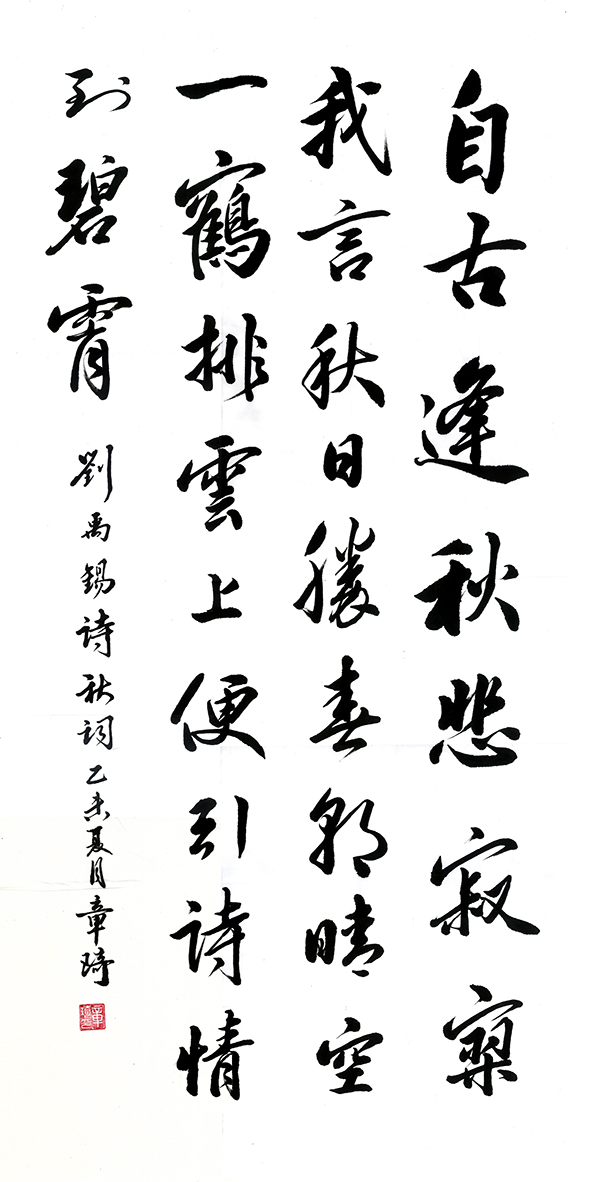 自古逢秋悲寂寥
我言秋日勝春朝晴空
一鶴排雲上便引詩情
到碧霄 劉禹錫詩秋詞 乙未夏月章琦